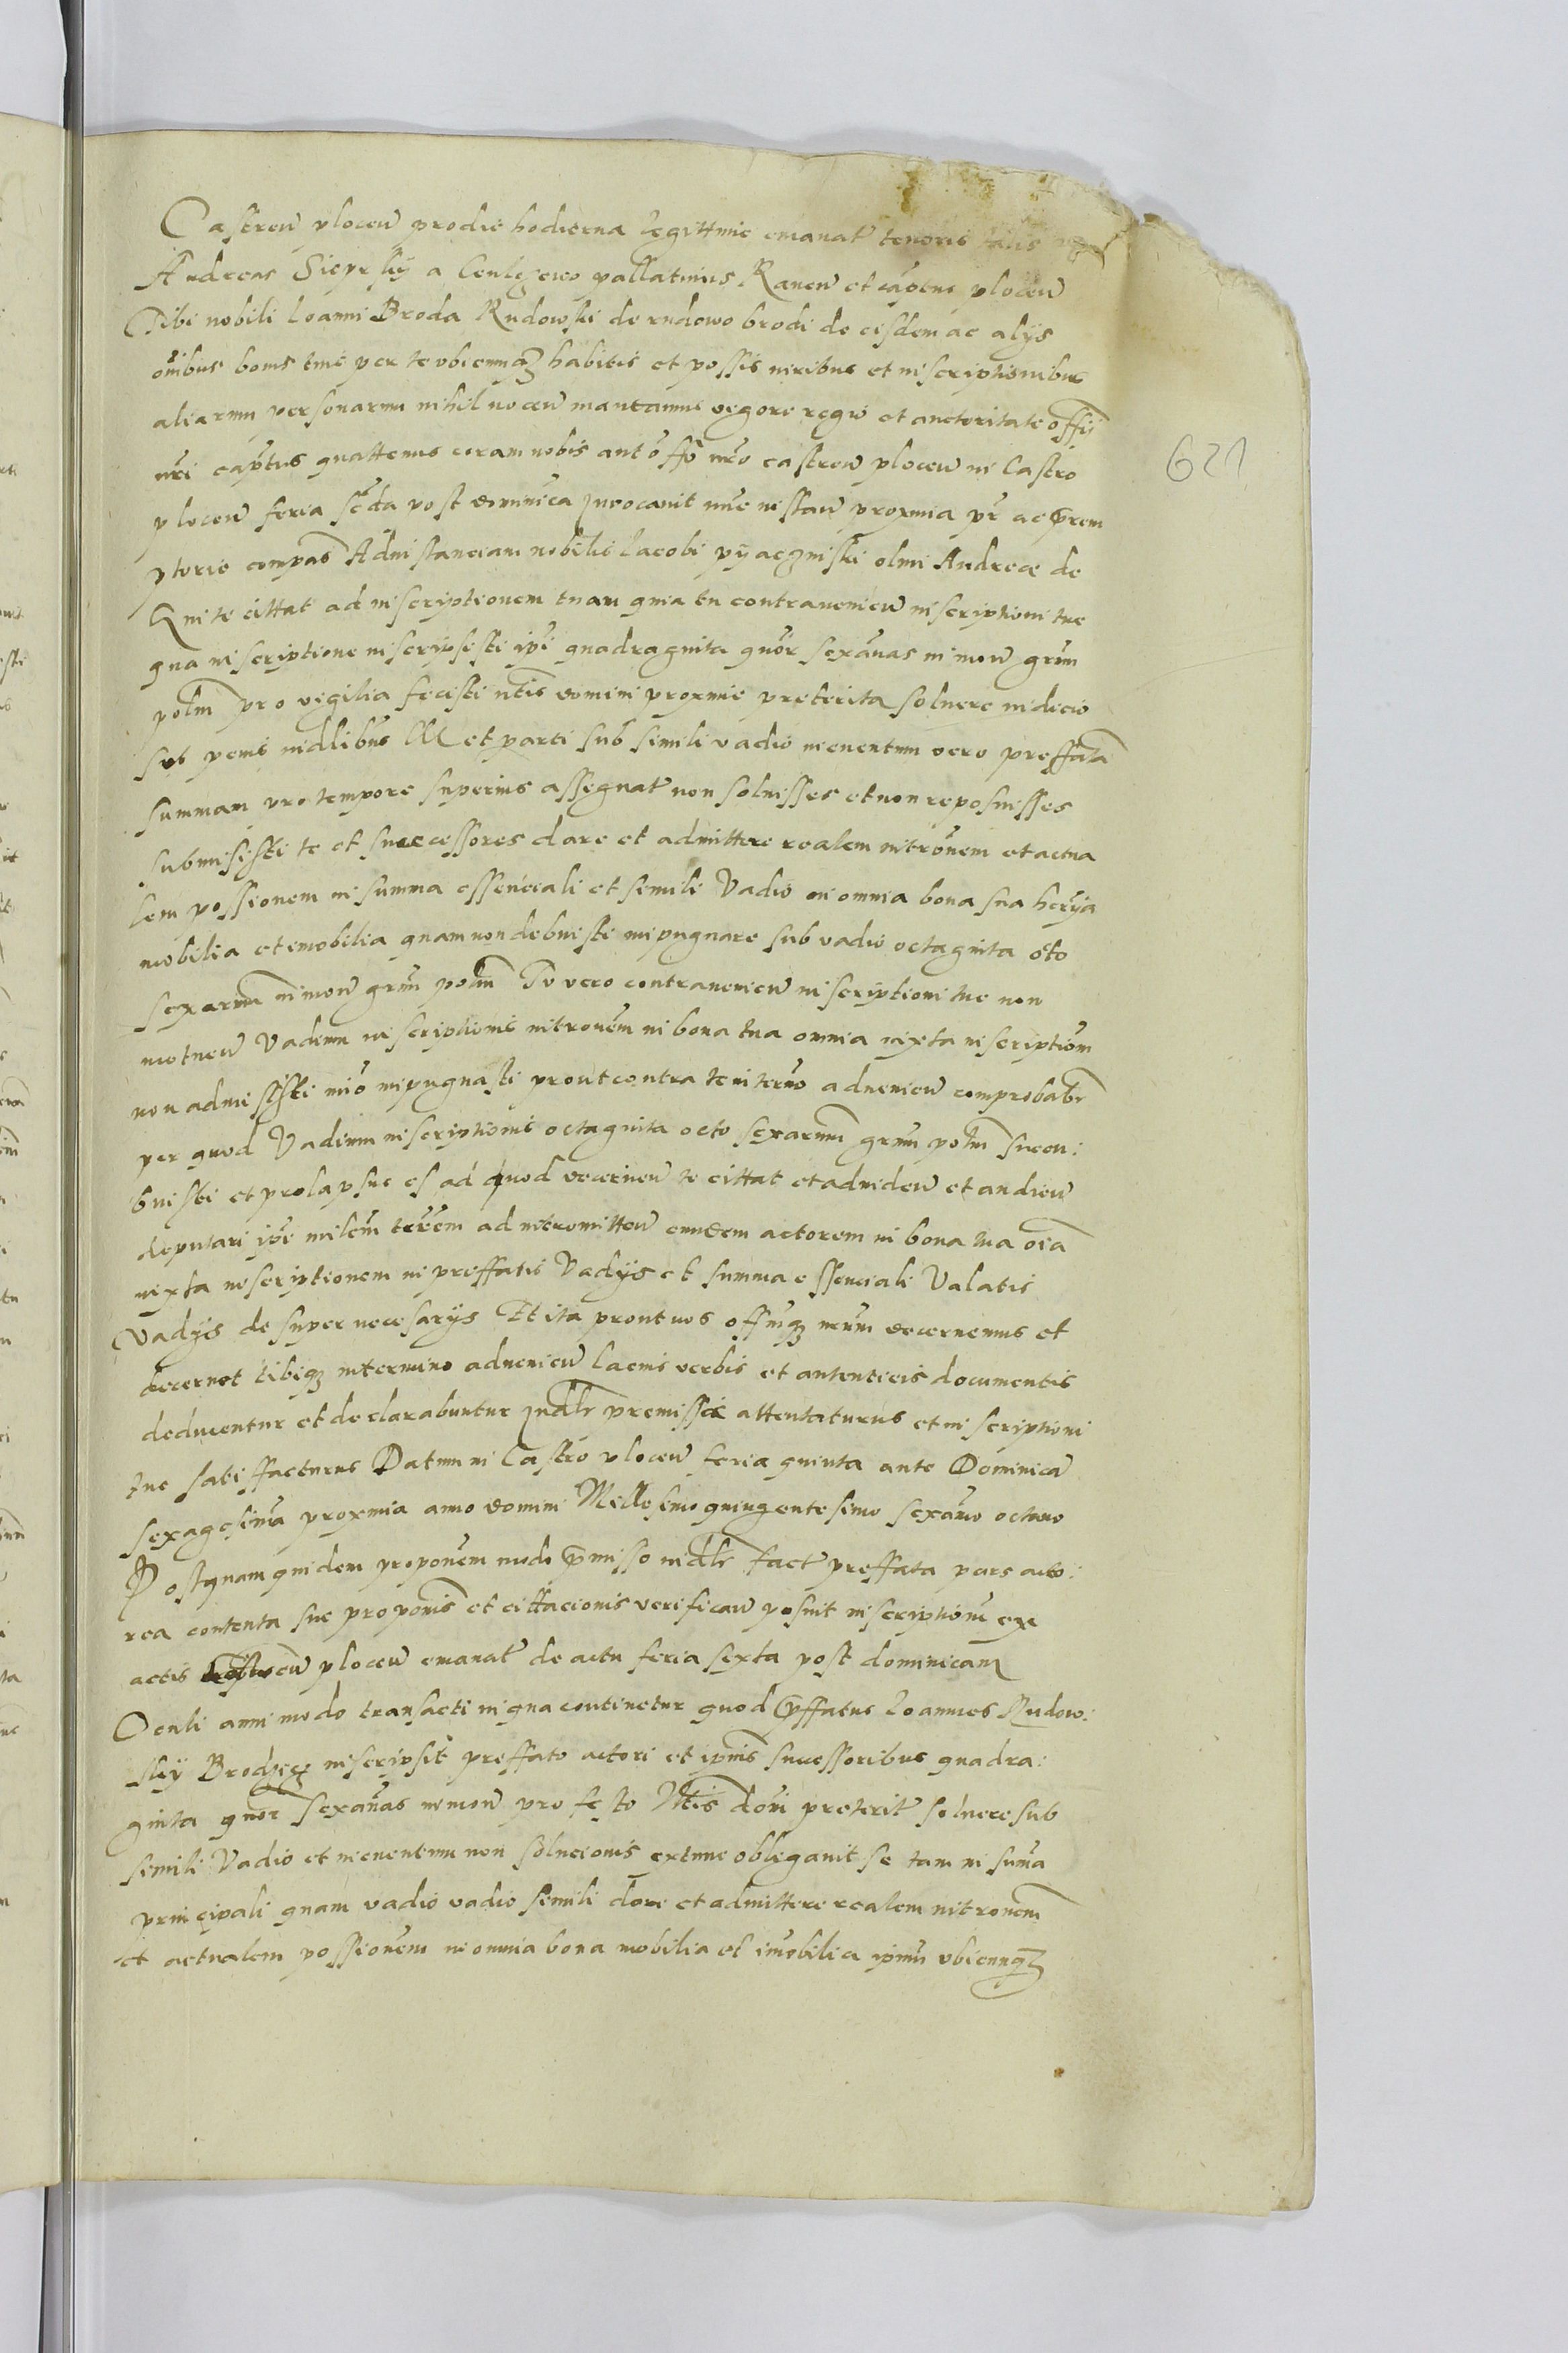 Castren plocen prodie hodierna legittime emanat tenoris talis
Andreas Sieprsky a Gulczewo pallatinus Raven et captus plocen
Tibi nobili Ioanni Broda Rudowski de rudowo brodi de eisdem ac alys
omibus bonis tuis per te vbicunq habitis et possis iuribus et inscriptionibus
aliarum personarum nihil nocen mantamus vigore regio et auctoritate offii
nri captus quattenus coram nobis aut offo nro castren plocen in Castro
plocen feria scda post dominica Inuocauit nunc instan proxima pr ac prem
ptorie compas Ad instanciam nobilis Iacobi olim Andreae de
Qui te cittat ad inscriptionem tuam quia tu contravenien inscriptioni tue
qua inscriptione inscripsisti ipi quadraginta quor sexanas in mon grum
polm pro vigilia festi ntis domini proxime preterita soluere iudicio
sub penis iudlibus XIIII et parti sub simili vadio ineuentum vero preffata
summam pro tempore superius assegnat non soluisses et non reposuisses
submisisti te et successores dare et admittere realem intronem et actua
lem possionem in summa essenciali et simili Vadio in omnia bona sua herya
mobilia et imobilia quam non debuisti inpugnare sub vadio octaginta octo
sexarum in mon grum polm Tu vero contravenien inscriptioni tue non
metuen Vadium inscriptionis intronem in bona tua omnia iuxta inscriptiom
non admisisti imo inpugnasti prout contra te in termo advenien comprobabr
per quod Vadium inscriptionis octaginta octo sexarum grum polm sucon:
buisti et prolapsus es ad quod decernen te cittat et adviden et audien
deputari ipi milem terrem ad intromitten eundem actorem in bona tua oia
iuxta inscriptionem in preffatis Vadys et summa essenciali Valatis
vadys de super necesarys Et ita prout nos offiuq nrum decernemus et
decernet tibiq in termino advenien lacius verbis et autenticis documentis
deducentur et declarabuntur Iudlr premissis attentaturus et inscriptioni
tue satisfacturus Datum in Castro plocen feria quinta ante Dominica
sexagesima proxima anno domini Millesimo quingentesimo sexamo octavo
Postquam quidem proponem modo pmisso iudlr fact preffata pars acto:
rea contenta sue proponis et cittacionis verifican posuit inscriptionem ex
actis castren plocen emanat de actu feria sexta post dominicam
Oculi anni modo transacti in qua continetur quod pffatus Ioannes Rudow:
sky Brodzęg inscripsit preffato actori et ipius successoribus quadra:
ginta quor sexanas in mon pro festo Ntis domi preterit soluere sub
simili Vadio et ineuentum non solucionis extunc obligauit se tam in suma
principali quam vadio vadio simili dare et admittere realem intronem
et actualem possionem in omnia bona mobilia et imobilia ipius vbicunq
621